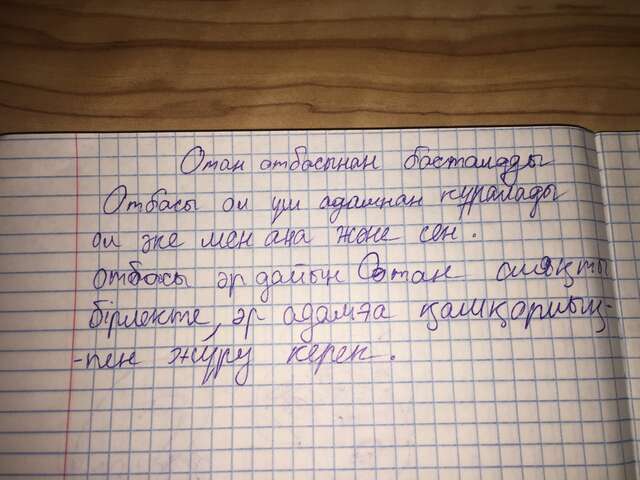 Отан отбасынан басталады
Отбасы ол үш адамнан құралады
ол әке мен ана және сен.
отбасы әр дайын Отан сияқты
бірлікте, әр адамға қамқорлық-
-пен жүру керек.